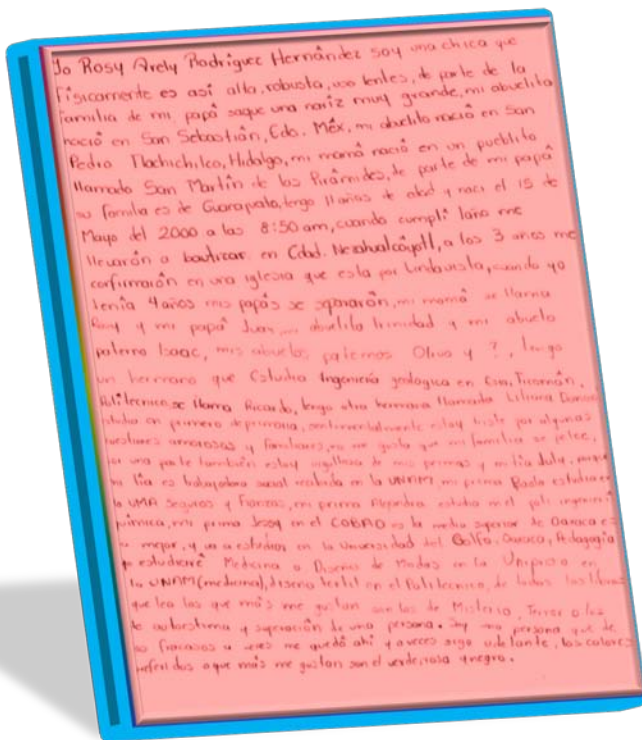 Yo Rosy Arely Rodriguez Hernández soy una chica que
físicamente es así alta, robusta, uso lentes, de parte de la
familia de mi papá saque una nariz muy grande, mi abuelita
nació en San Sebastián, Edo. Méx, mi abuelito nació en San
Pedro Tlachichilco, Hidalgo, mi mamá nació en un pueblito
llamado San Martín de las Pirámides, de parte de mi papá
su familia es de Guanajuato, tengo 11 años de edad y naci el 15 de
Mayo del 2000 a las 8:50 am, cuando cumplí 1 año me
llevarón a bautizar en Cdad. Nezahualcóyotl, a los 3 años me
confirmarón en una iglesia que esta por Lindavista, cuando yo
tenía 4 años mis papás se separarón, mi mamá se llama
Rosy y mi papá Juan, mi abuelita trinidad y mi abuelo
paterno Isaac, mis abuelos paternos Oliva y ?, tengo
un hermano que Estudia Ingeniería geologica en Ticomán,
Politecnico, se llama Ricardo, tengo otra hermana llamada Liliana
estudia en primero de primaria, sentimentalmente estoy triste por algunas
cuestiones amorosas y familiares, no me gusta que mi familia se pelee,
por una parte también estoy orgullosa de mis primas y mi tia, porque
mi tia es trabajadora social en la UNAM, mi prima Paola estudia en
la UMA Seguros y Fianzas, mi prima Alejandra estudia en el poli ingenieria
química, mi prima Jessy en el COBAO es la media superior de Oaxaca es
la mejor, y va a estudiar en la Universidad del Golfo, Oaxaca, Pedagogia
yo estudiaré Medicina o Diseño de Modas en la en
la UNAM (medicina), diseño textil en el Politecnico, de todos los libros
que lea los que más me gustan son los de Misterio, Terror o los
de autoestima y superación de una persona. Soy una persona que de
los fracasos a veces me quedó ahí y a veces sigo adelante, los colores
preferidos o que más me gustan son el verde, rosa y negro.